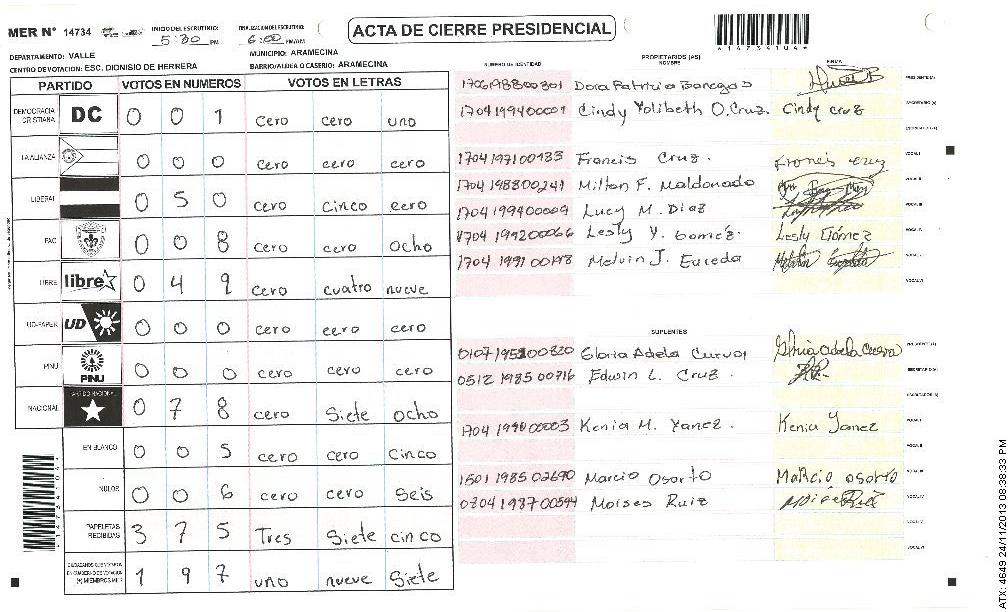 MER N° 14734
INICIO DEL ESCRUTINIO: 5:30 PM
FINALIZACION DEL ESCRUTINIO: 6:00 PM/AM
ACTA DE CIERRE PRESIDENCIAL
*14734104*
DEPARTAMENTO: VALLE
MUNICIPIO: ARAMECINA
CENTRO DE VOTACION: ESC. DIONISIO DE HERRERA
BARRIO/ALDEA O CASERIO: ARAMECINA
PARTIDO VOTOS EN NUMEROS VOTOS EN LETRAS
DEMOCRACIA CRISTIANA DC 0 0 1 cero cero uno
LA ALIANZA 0 0 0 cero cero cero
LIBERAL 0 5 0 cero cinco cero
PAC 0 0 8 cero cero ocho
LIBRE libre 0 4 9 cero cuatro nueve
UD-FAPER UD 0 0 0 cero cero cero
PINU PINU 0 0 0 cero cero cero
NACIONAL PARTIDO NACIONAL 0 7 8 cero Siete ocho
EN BLANCO 0 0 5 cero cero cinco
NULOS 0 0 6 cero cero seis
PAPELETAS RECIBIDAS 3 7 5 Tres Siete cinco
CIUDADANOS QUE VOTARON 1 9 7 uno nueve Siete
NUMERO DE IDENTIDAD PROPIETARIOS (AS) NOMBRE FIRMA
Dora Patricia Banegas PRESIDENTE (A)
1704199400009 Cindy Yolibeth O. Cruz. Cindy cruz SECRETARIO (A)
ESCRUTADOR (A)
1704197100183 Francis Cruz. Francis cruz VOCAL I
1704198800241 Milton F. Maldonado VOCAL II
1704199400009 Lucy M. Diaz VOCAL III
1704199200066 Lesly Y. Gomez. Lesly Gómez VOCAL IV
Melvin J. Euceda VOCAL V
VOCAL VI
SUPLENTES
Gloria Adela Gloria adela PRESIDENTE (A)
0512198500716 Edwin L. Cruz. SECRETARIO (A)
ESCRUTADOR (A)
Kenia M. Yanez. Kenia Yanez VOCAL I
VOCAL II
1501198502690 Marcio Osorto Marcio osorto VOCAL III
Moises Ruiz VOCAL IV
VOCAL V
VOCAL VI
ATX: 4649 24/11/2013 08:38:33 PM